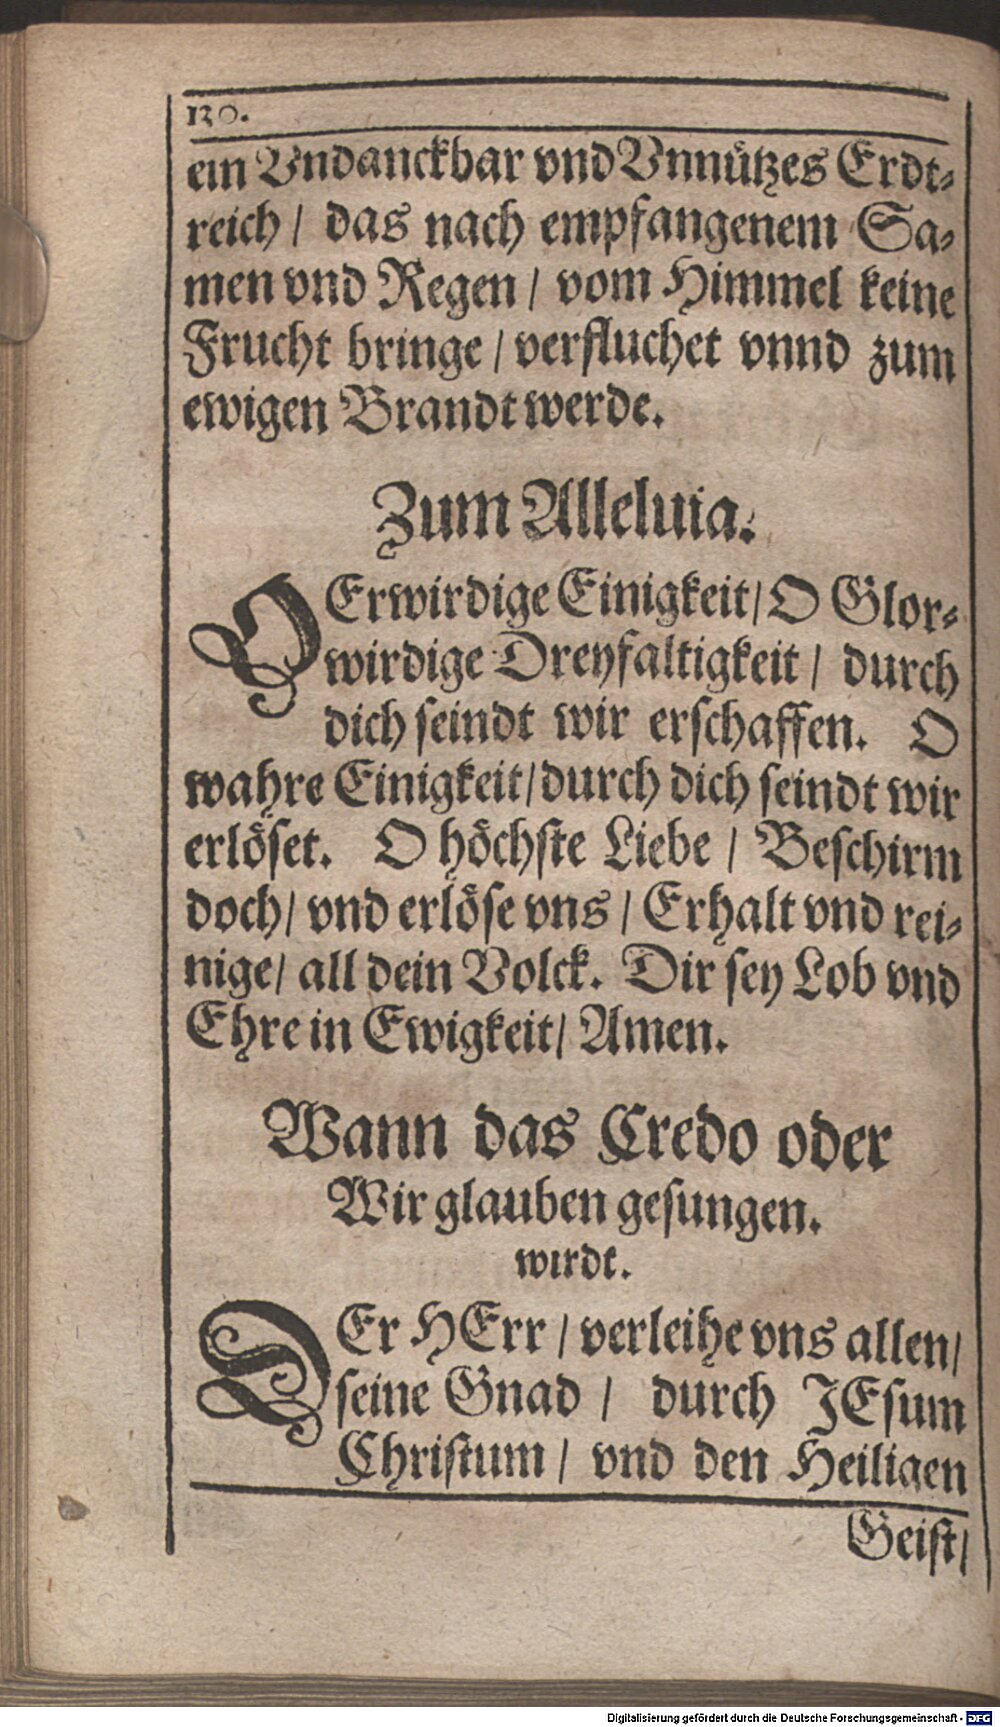 130.
ein Vndanckbar vnd Vnnützes Erdt-
reich / das nach empfangenem Sa-
men vnd Regen / vom Himmel keine
Frucht bringe / verfluchet vnnd zum
ewigen Brandt werde.
Zum Alleluia.
OErwirdige Einigkeit / O Glor-
wirdige Dreyfaltigkeit / durch
dich seindt wir erschaffen. O
wahre Einigkeit / durch dich seindt wir
erlöset. O höchste Liebe / Beschirm
doch / vnd erlöse vns / Erhalt vnd rei-
nige / all dein Volck. Dir sey Lob vnd
Ehre in Ewigkeit / Amen.
Wann das Credo oder
Wir glauben gesungen.
wirdt.
DEr HErr / verleihe vns allen /
seine Gnad / durch JEsum
Christum / vnd den Heiligen
Geist /
Digitalisierung gefördert durch die Deutsche Forschungsgemeinschaft - DFG